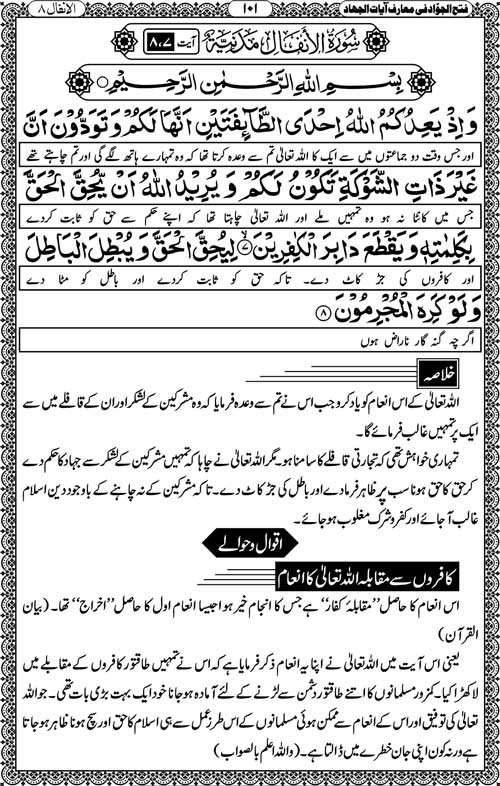 فتح الجوّاد فی معارف آیات الجهاد ۱۰۱ الانفال ۸
سُوْرَةُ الْاَنْفَالِ مَدَنِيَّةٌ آیت ۸،۷
بِسْمِ اللهِ الرَّحْمٰنِ الرَّحِيْمِ
وَاِذْ يَعِدُكُمُ اللهُ اِحْدَى الطَّآئِفَتَيْنِ اَنَّهَا لَكُمْ وَتَوَدُّوْنَ اَنَّ
اور جس وقت دو جماعتوں میں سے ایک کا اللہ تعالیٰ تم سے وعدہ کرتا تھا کہ وہ تمہارے ہاتھ لگے گی اور تم چاہتے تھے
غَيْرَ ذَاتِ الشَّوْكَةِ تَكُوْنُ لَكُمْ وَ يُرِيْدُ اللهُ اَنْ يُّحِقَّ الْحَقَّ
جس میں کانٹا نہ ہو وہ تمہیں ملے اور اللہ تعالیٰ چاہتا تھا کہ اپنے حکم سے حق کو ثابت کردے
بِكَلِمٰتِهٖ وَيَقْطَعَ دَابِرَ الْكٰفِرِيْنَ ﴿۷﴾ لِيُحِقَّ الْحَقَّ وَيُبْطِلَ الْبَاطِلَ
اور کافروں کی جڑ کاٹ دے۔ تاکہ حق کو ثابت کردے اور باطل کو مٹا دے
وَلَوْ كَرِهَ الْمُجْرِمُوْنَ ﴿۸﴾
اگرچہ گنہ گار ناراض ہوں
خلاصہ
اللہ تعالیٰ کے اس انعام کو یاد کرو جب اس نے تم سے وعدہ فرمایا کہ وہ مشرکین کے لشکر اور ان کے قافلے میں سے
ایک پر تمہیں غالب فرمائے گا۔
تمہاری خواہش تھی کہ تجارتی قافلے کا سامنا ہو۔ مگر اللہ تعالیٰ نے چاہا کہ تمہیں مشرکین کے لشکر سے جہاد کا حکم دے
کر حق کا حق ہونا سب پر ظاہر فرما دے اور باطل کی جڑ کاٹ دے۔ تاکہ مشرکین کے نہ چاہنے کے باوجود دین اسلام
غالب آ جائے اور کفر و شرک مغلوب ہو جائے۔
اقوال وحوالے
کافروں سے مقابلہ اللہ تعالیٰ کا انعام
اس انعام کا حاصل ’’مقابلۂ کفار‘‘ ہے جس کا انجام خیر ہوا جیسا انعام اول کا حاصل ’’اخراج‘‘ تھا۔ (بیان
القرآن)
یعنی اس آیت میں اللہ تعالیٰ نے اپنا یہ انعام ذکر فرمایا ہے کہ اس نے تمہیں طاقتور کافروں کے مقابلے میں
لا کھڑا کیا۔ کمزور مسلمانوں کا اتنے طاقتور دشمن سے لڑنے کے لئے آمادہ ہو جانا خود ایک بہت بڑی بات تھی۔ جو اللہ
تعالیٰ کی توفیق اور اس کے انعام سے ممکن ہوئی مسلمانوں کے اس طرز عمل سے ہی اسلام کا حق اور سچ ہونا ظاہر ہو جاتا
ہے ورنہ کون اپنی جان خطرے میں ڈالتا ہے۔ (واللہ اعلم بالصواب)